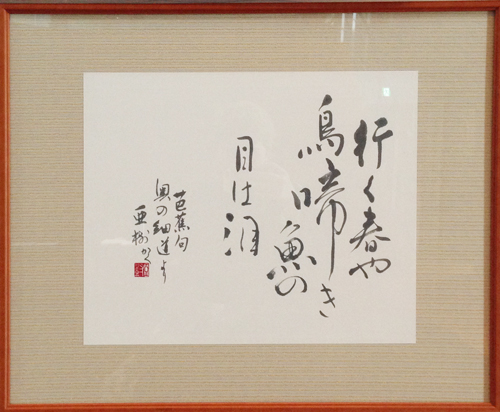 行く春や
鳥啼き
魚の
目は泪
芭蕉句
奥の細道より